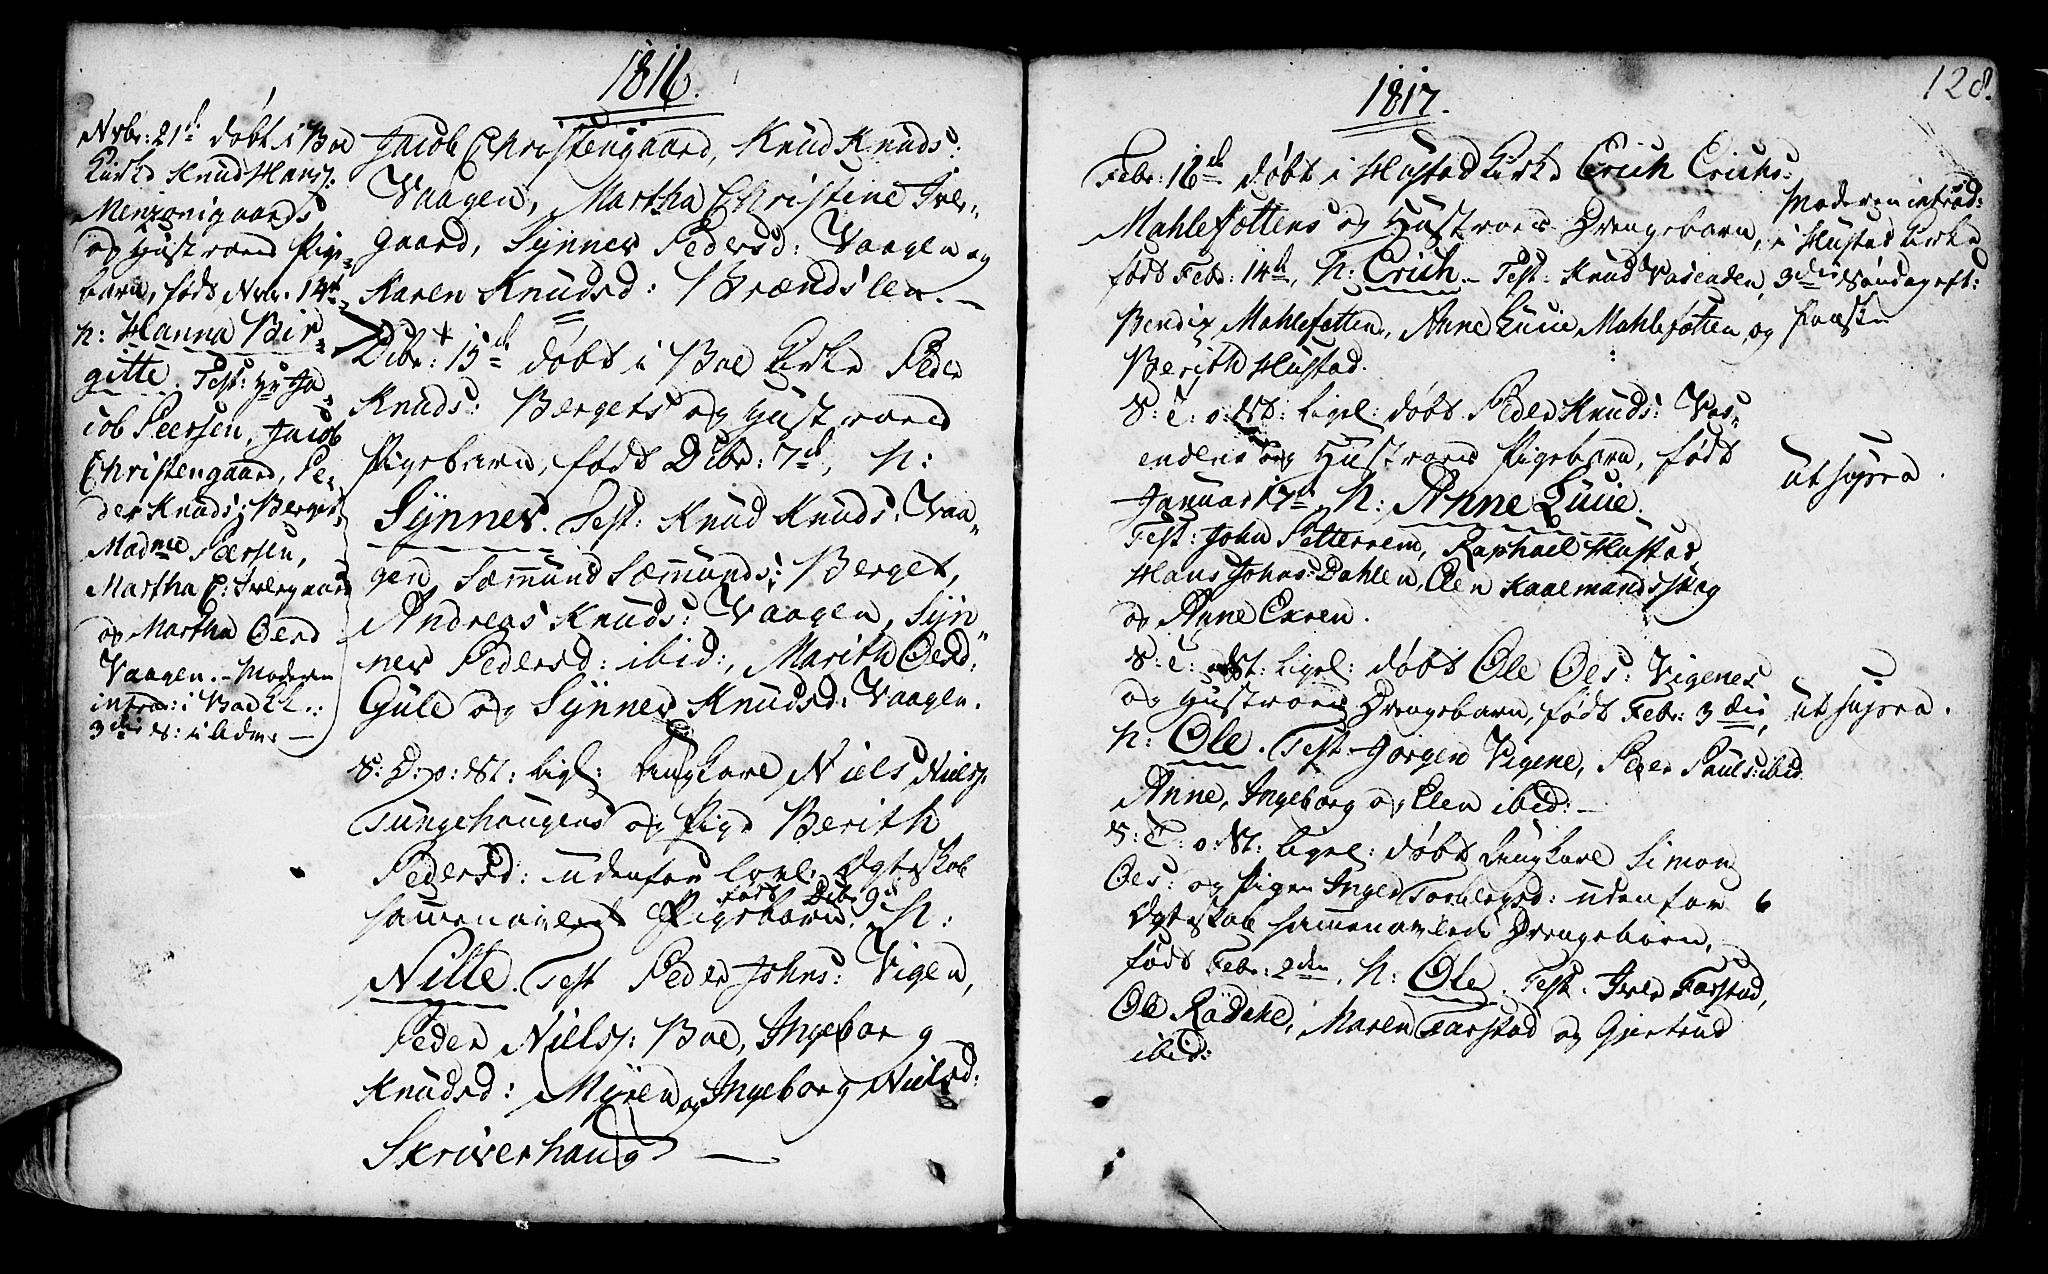 1816.
Nvbr: 21de døbt i Boe
Kirke Knud Hans:
Menzonigaards
og Hustroes Pige-
barn, født Nvbr. 14de
n: Hanna Bir-
gitte. Test: Hr Ja-
cob Peersen, Jacob
Christengaard, Pe-
der Knuds: Berget,
Madme Peersen,
Martha C: Ivergaard
og Martha Oesd
Vaagen. - Moderen
introd: i Boe K:
3die S: i Adv:
Jacob Christengaard, Knud Knuds:
Vaagen, Martha Christine Iver-
gaard, Synnev Pedersd: Vaagen og
Karen Knudsd: Brændslen. -
Dcbr: 15de døbt i Boe Kirke Peder
Knuds: Bergets og Hustroes
Pigebarn, født Dcbr: 7de, n:
Synnev. Test: Knud Knuds: Vaa-
gen, Sæmund Sæmunds: Berget,
Andreas Knuds: Vaagen, Syn-
nev Pedersd: ibid:, Marith Oesd:
Gule og Synnev Knudsd: Vaagen.
S: D: o: St: ligl: Ungkarl Niels Niels:
Tungehaugens og Pige Berith
Pedersd: udenfor lovl: Ægteskab
sammenavlede Pigebarn, født Dcbr 9de n:
Nille. Test Peder Johns: Vigen,
Peder Niels: Boe, Ingeborg
Knudsd: Myren og Ingeborg Nielsd:
Skriverhaug -
1817.
128.
Febr: 16de døbt i Hustad Kirke Erich Erichs:
Mahlefættens og Hustroes Drengebarn,
født Febr: 14de, n: Erich. - Test: Knud Vasenden,
Bendix Mahlefætten, Anne Lucie Mahlefætten og
Berith Hustad.
Moderen introd:
i Hustad Kirke
3die Søndag eft:
Paaske
S: T: o: St: ligel: døbt Peder Knuds: Vas-
endens og Hustroes Pigebarn, født
Januar 17de, n: Anne Lucie.
Test: John Petterrem, Raphael Hustad,
Hans Johns: Dahlen, Elen Kaalmandsskag
og Anne Exren.
ut supra.
S: T: o: St: ligel: døbt Ole Oes: Vigenes
og Hustroes Drengebarn, født Febr: 3die,
n: Ole. Test Jørgen Vigene, Peder Pauls: ibid.
Anne, Ingeborg og Elen ibid: -
ut supra.
S: T: o: St: ligel: døbt Ungkarl Simon
Oes: og Pigen Inger Torlegsd: udenfor
Ægteskab sammenavlede Drengebarn,
født Febr: 2den, n: Ole. Test. Iver Farstad,
Ole Rødahl, Maren Farstad og Gjertrud
ibid:
6